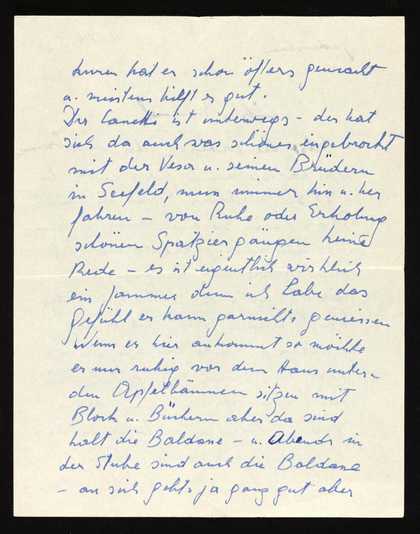 kuren hat er schon öfters gemacht
u. meistens hilft es gut.
Der Canetti ist unterwegs - der hat
sich da auch was schönes eingebrockt
mit der Vesa u. seinen Brüdern
in Seefeld, nun immer hin u. her
fahren - von Ruhe oder Erholung
schönen Spatziergängen keine
Rede - es ist eigentlich wirklich
ein Jammer denn ich habe das
Gefühl er kann garnichts geniessen
Wenn er hier ankommt so möchte
er nur ruhig vor dem Haus unter
den Apfelbäumen sitzen mit
Block u. Büchern aber da sind
halt die Baldane - u. Abends in
der Stube sind auch die Baldane
- an sich gehts ja ganz gut aber